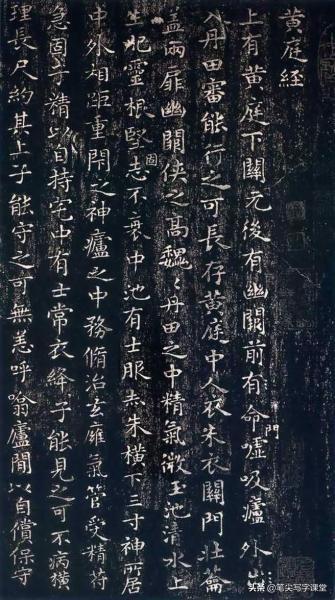 黃庭經
上有黃庭下關元後有幽闕前有命門噓吸廬外出
入丹田審能行之可長存黃庭中人衣朱衣關門壯籥
蓋兩扉幽闕俠之高魏〻丹田之中精氣微玉池清水上
生肥靈根堅固志不衰中池有士服赤朱橫下三寸神所居
中外相距重閉之神廬之中務脩治玄膺氣管受精符
急固子精以自持宅中有士常衣絳子能見之可不病橫
理長尺約其上子能守之可無恙呼噏廬間以自償保守
头条 @笔尖写字课堂